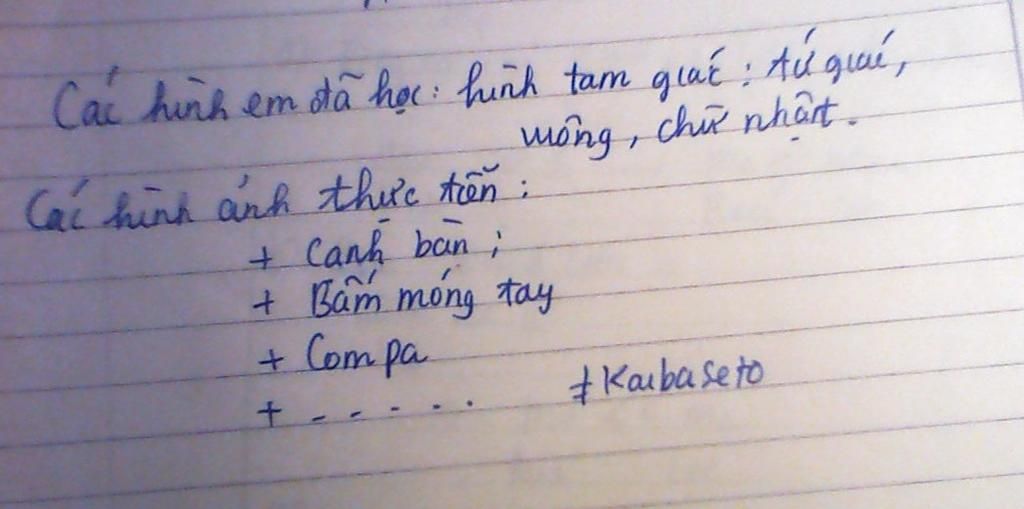 Các hình em đã học: hình tam giác; tứ giác,
vuông, chữ nhật.
Các hình ảnh thực tiễn:
+ Cạnh bàn;
+ Bấm móng tay
+ Compa
+ Kaibaseto
+ - - - - .